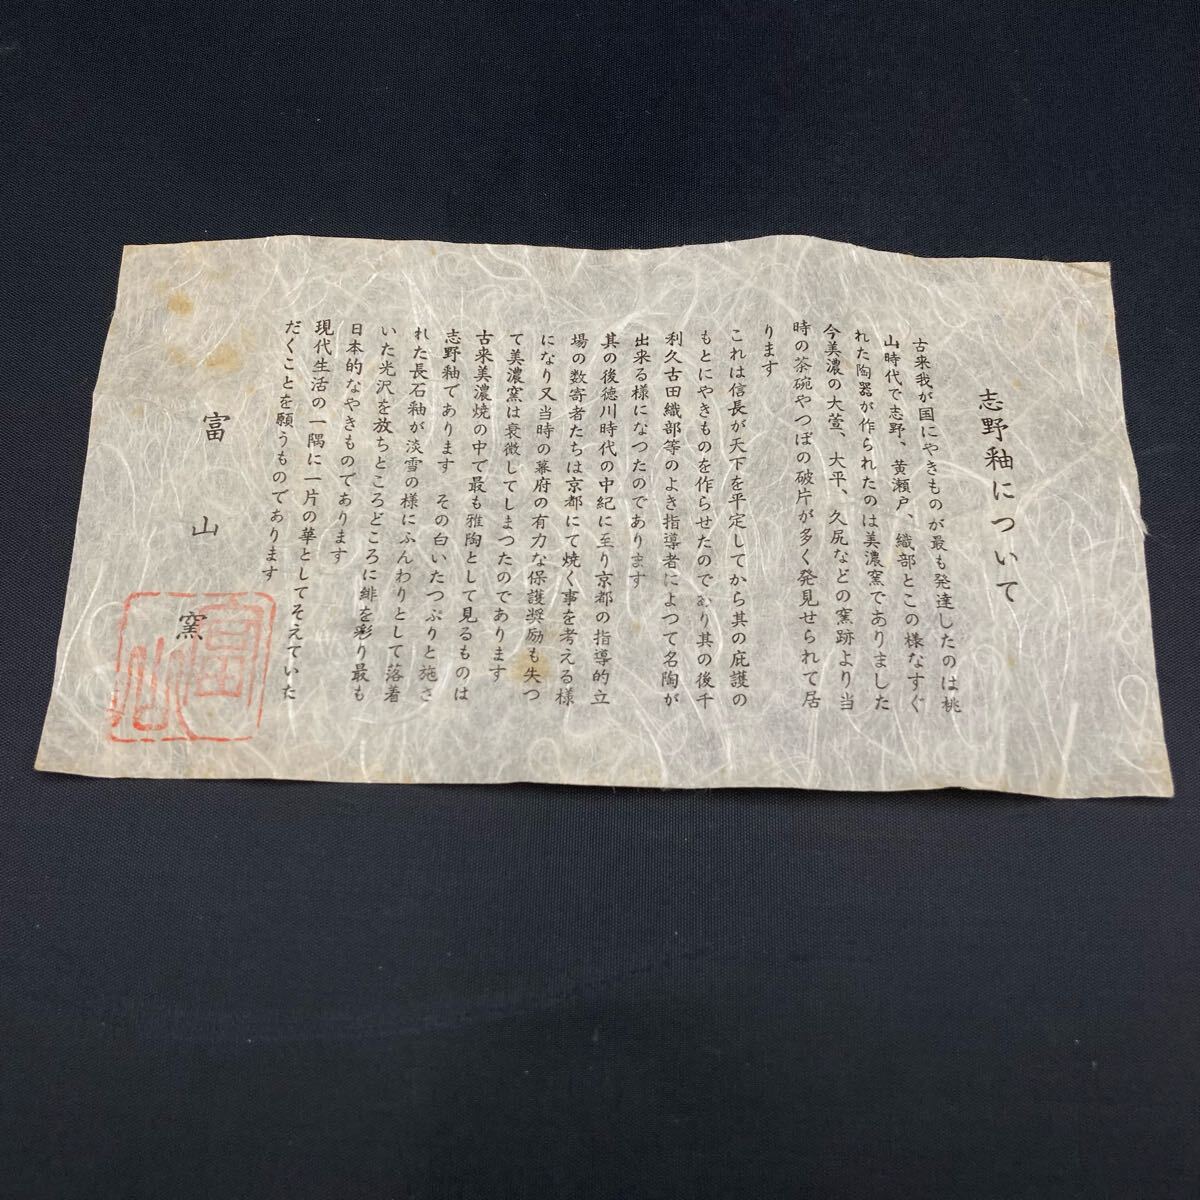 志野釉について
古来我が国にやきものが最も発達したのは桃
山時代で志野、黄瀬戸、織部とこの様なすぐ
れた陶器が作られたのは美濃窯でありました
今美濃の大萱、大平、久尻などの窯跡より当
時の茶碗やつぼの破片が多く発見せられて居
ります
これは信長が天下を平定してから其の庇護の
もとにやきものを作らせたのであり其の後千
利久古田織部等のよき指導者によつて名陶が
出来る様になつたのであります
其の後徳川時代の中紀に至り京都の指導的立
場の数寄者たちは京都にて焼く事を考える様
になり又当時の幕府の有力な保護奨励も失つ
て美濃窯は衰微してしまつたのであります
古来美濃焼の中で最も雅陶として見るものは
志野釉であります　その白いたつぷりと施さ
れた長石釉が淡雪の様にふんわりとして落着
いた光沢を放ちところどころに緋を彩り最も
日本的なやきものであります
現代生活の一隅に一片の華としてそえていた
だくことを願うものであります
富山窯
富山